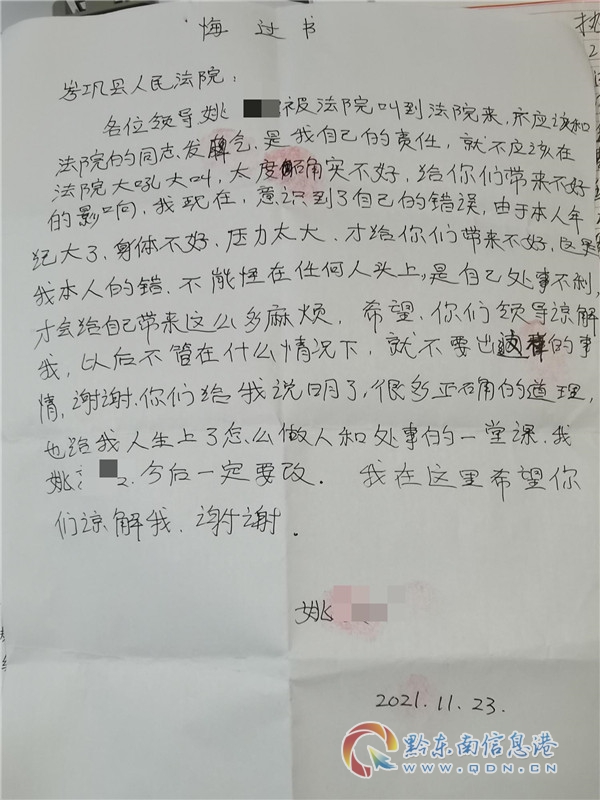 悔过书
岑巩县人民法院:
各位领导姚 被法院叫到法院来,不应该和
法院的同志发脾气,是我自己的责任,就不应该在
法院大吼大叫,太度确实不好,给你们带来不好
的影响,我现在,意识到了自己的错误,由于本人年
纪大了、身体不好、压力太大、才给你们带来不好,这是
我本人的错、不能怪在任何人头上,是自己处事不利,
才会给自己带来这么多麻烦. 希望,你们领导谅解
我,以后不管在什么情况下,就不要出这样的事
情,谢谢、你们给我说明了,很多正确的道理,
也给我人生上了怎么做人和处事的一堂课、我
姚 、今后一定要改. 我在这里希望你
们谅解我、谢谢.
姚
2021.11.23.
黔东南信息港
WWW.QDN.CN